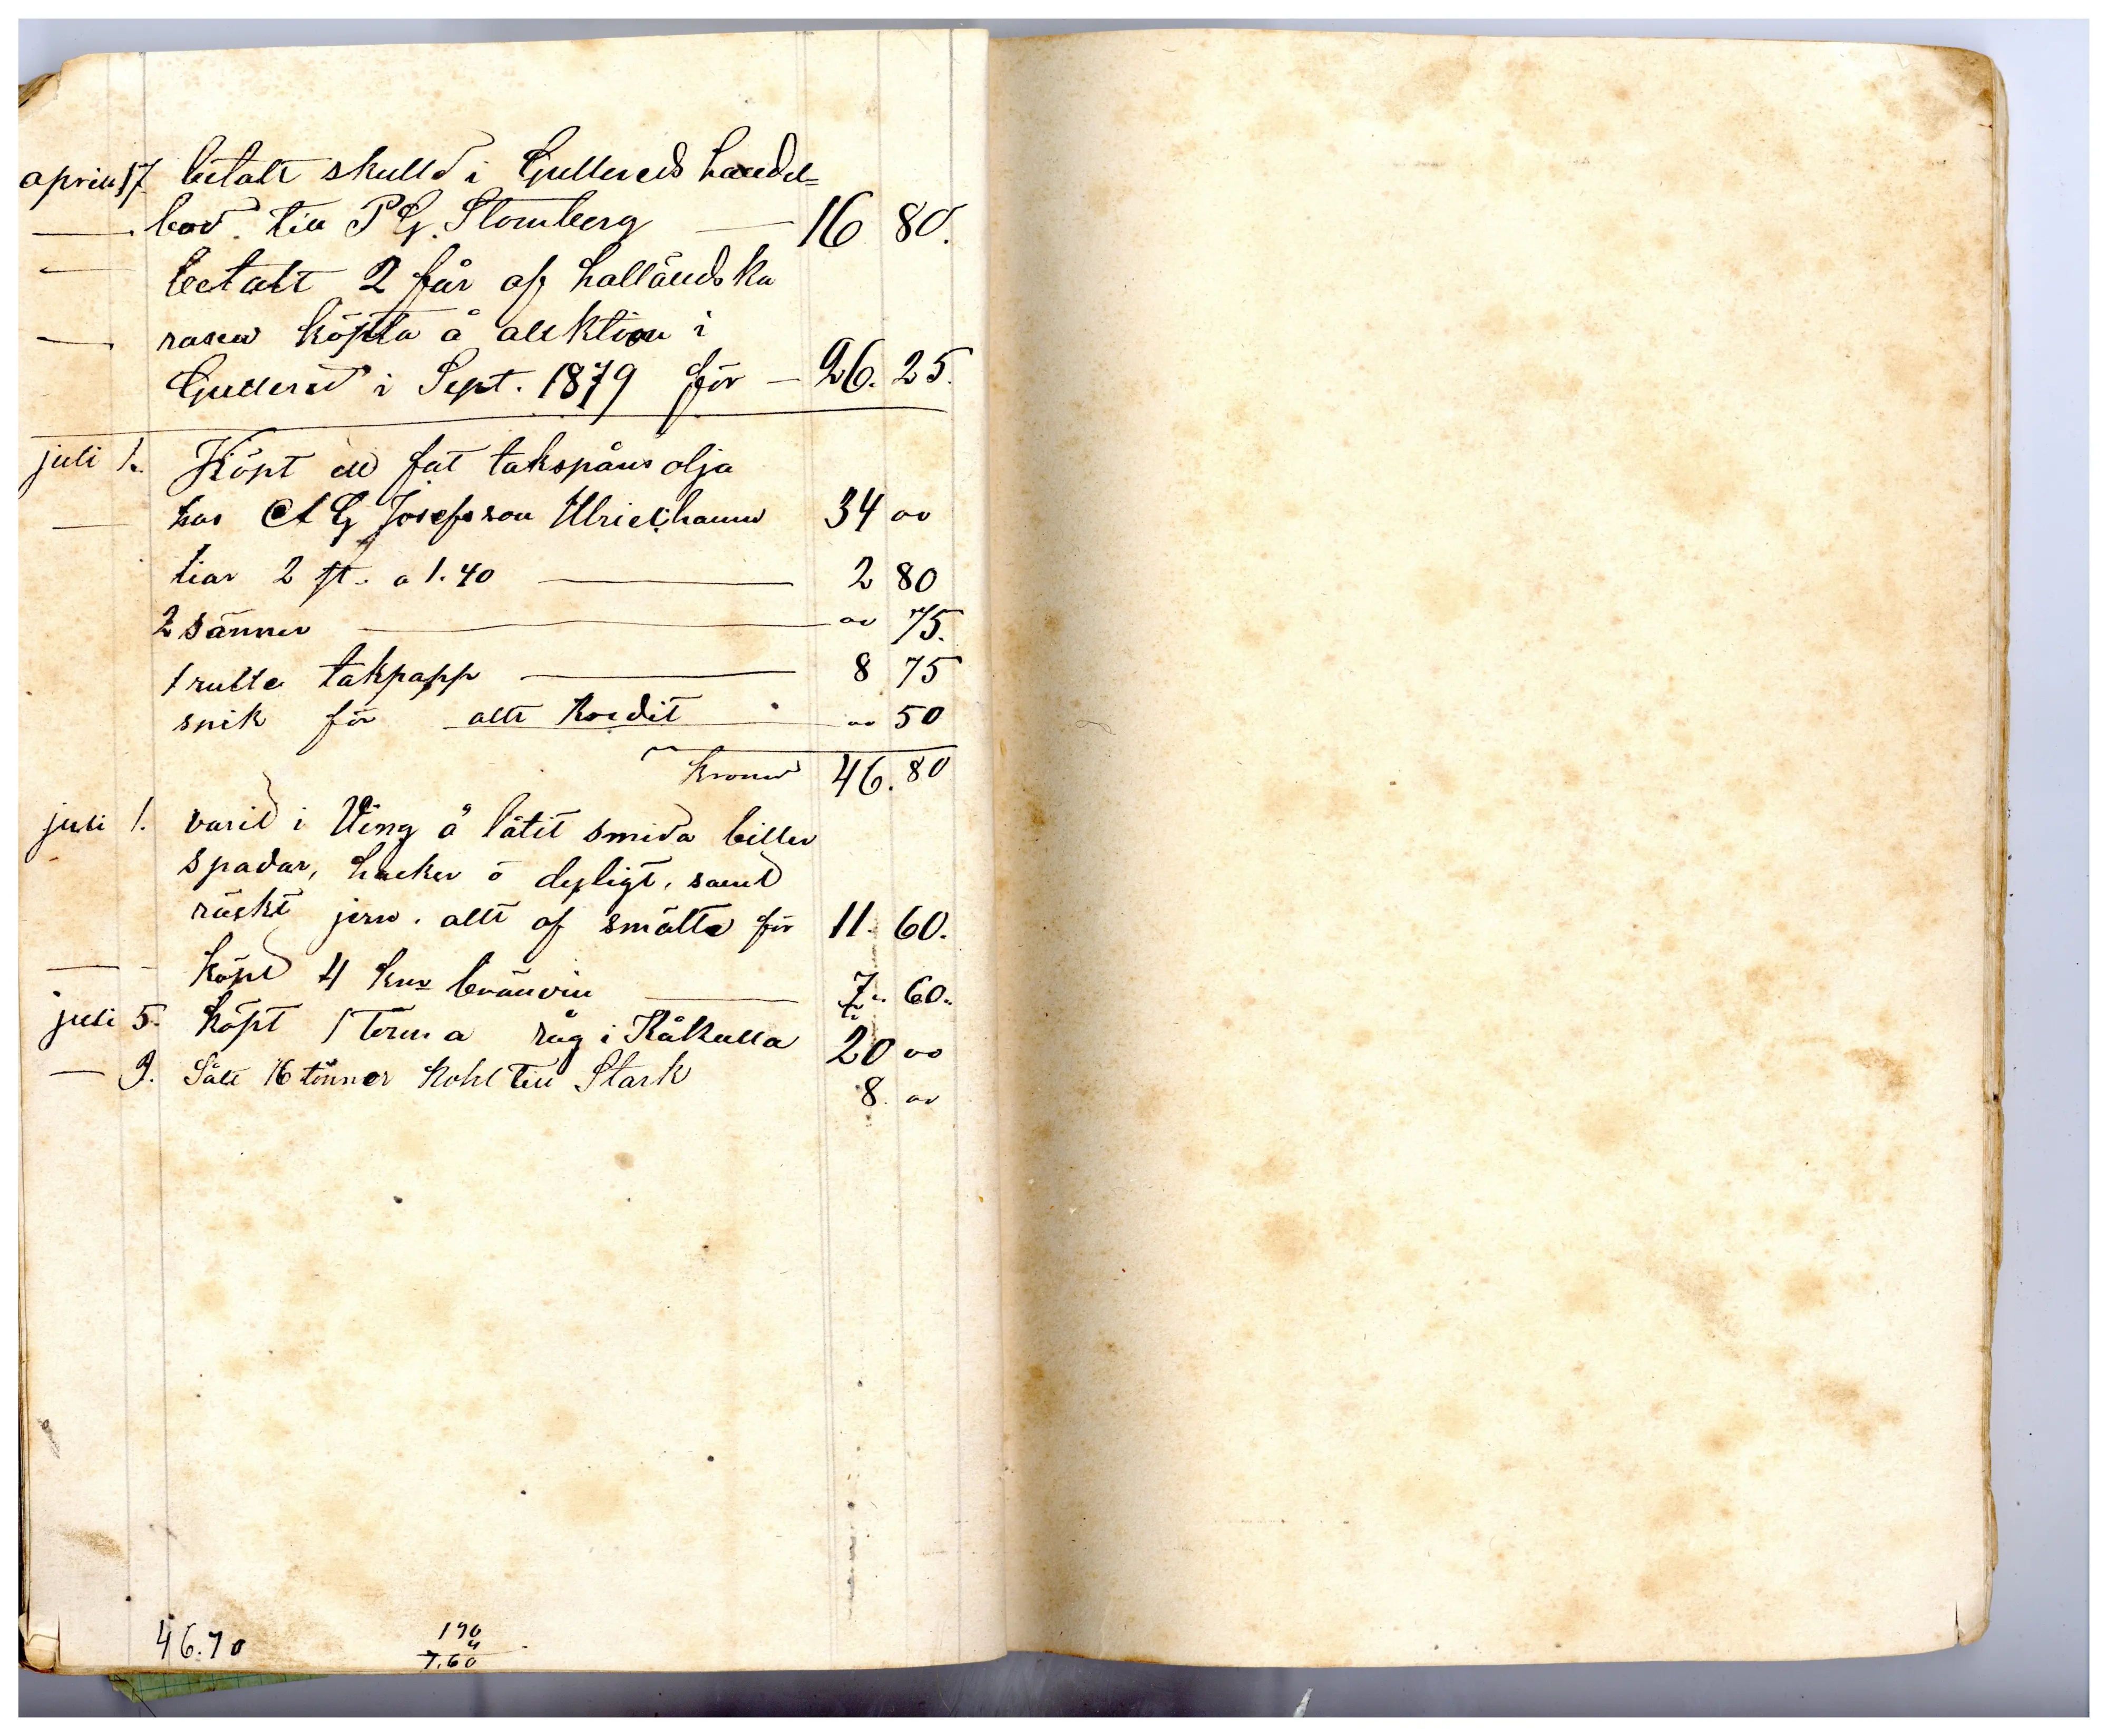 april 17 betalt skulld i Gullereds handel=
bod. till P G. Stomberg — 16 80.
betalt 2 får af halländska
rasen köpta å auktion i
Gullered i Sept. 1879 för — 26. 25.
juli 1. Köpt ett fat takspåns olja
hos A G Josefsson Ulricehamn 34 00
tiar 2 st. a 1.40 — 2 80
2 sänner — 00 75.
1 rulle takpapp — 8 75
snik för allt kredit 00 50
kronor 46. 80
juli 1. varit i Ving å låtit smida biller
spadar, hacker ö dyligt, samt
räckt jern. allt af smålte för 11. 60.
köpt 4 knr bränvin — 7. 60.
juli 5. köpt 1 Tunna råg i Kåkulla 20 00
— 9. Sålt 16 tönner kohl till Stark 8. 00
46.70 190
4
7.60